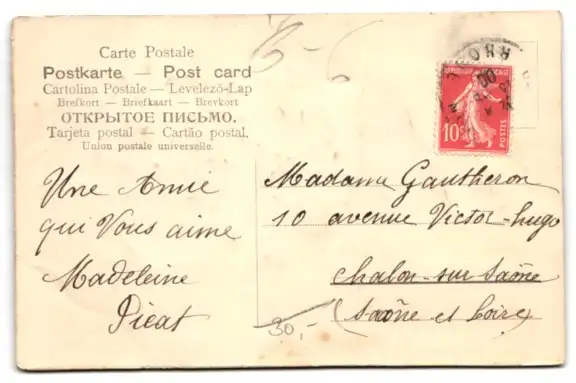 Carte Postale
Postkarte — Post card
Cartolina Postale — Levelező-Lap
Brefkort — Briefkaart — Brevkort
ОТКРЫТОЕ ПИСЬМО.
Tarjeta postal — Cartão postal.
Union postale universelle.
REPUBLIQUE FRANÇAISE
10
POSTES
Une Amie
qui Vous aime
Madeleine
Picat
Madame Gautheron
10 avenue Victor-hugo
Chalon-sur-Saône
(Saône et Loire)
30,-